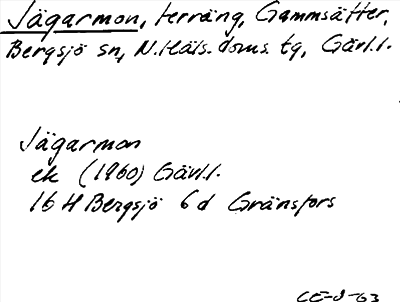 Jägarmon, terräng, Gammsätter,
Bergsjö sn, N. Häls. doms. tg, Gävl.l.
Jägarmon
ek (1960) Gävl.l.
16 H Bergsjö 6 d Gränsfors
CE-J-63